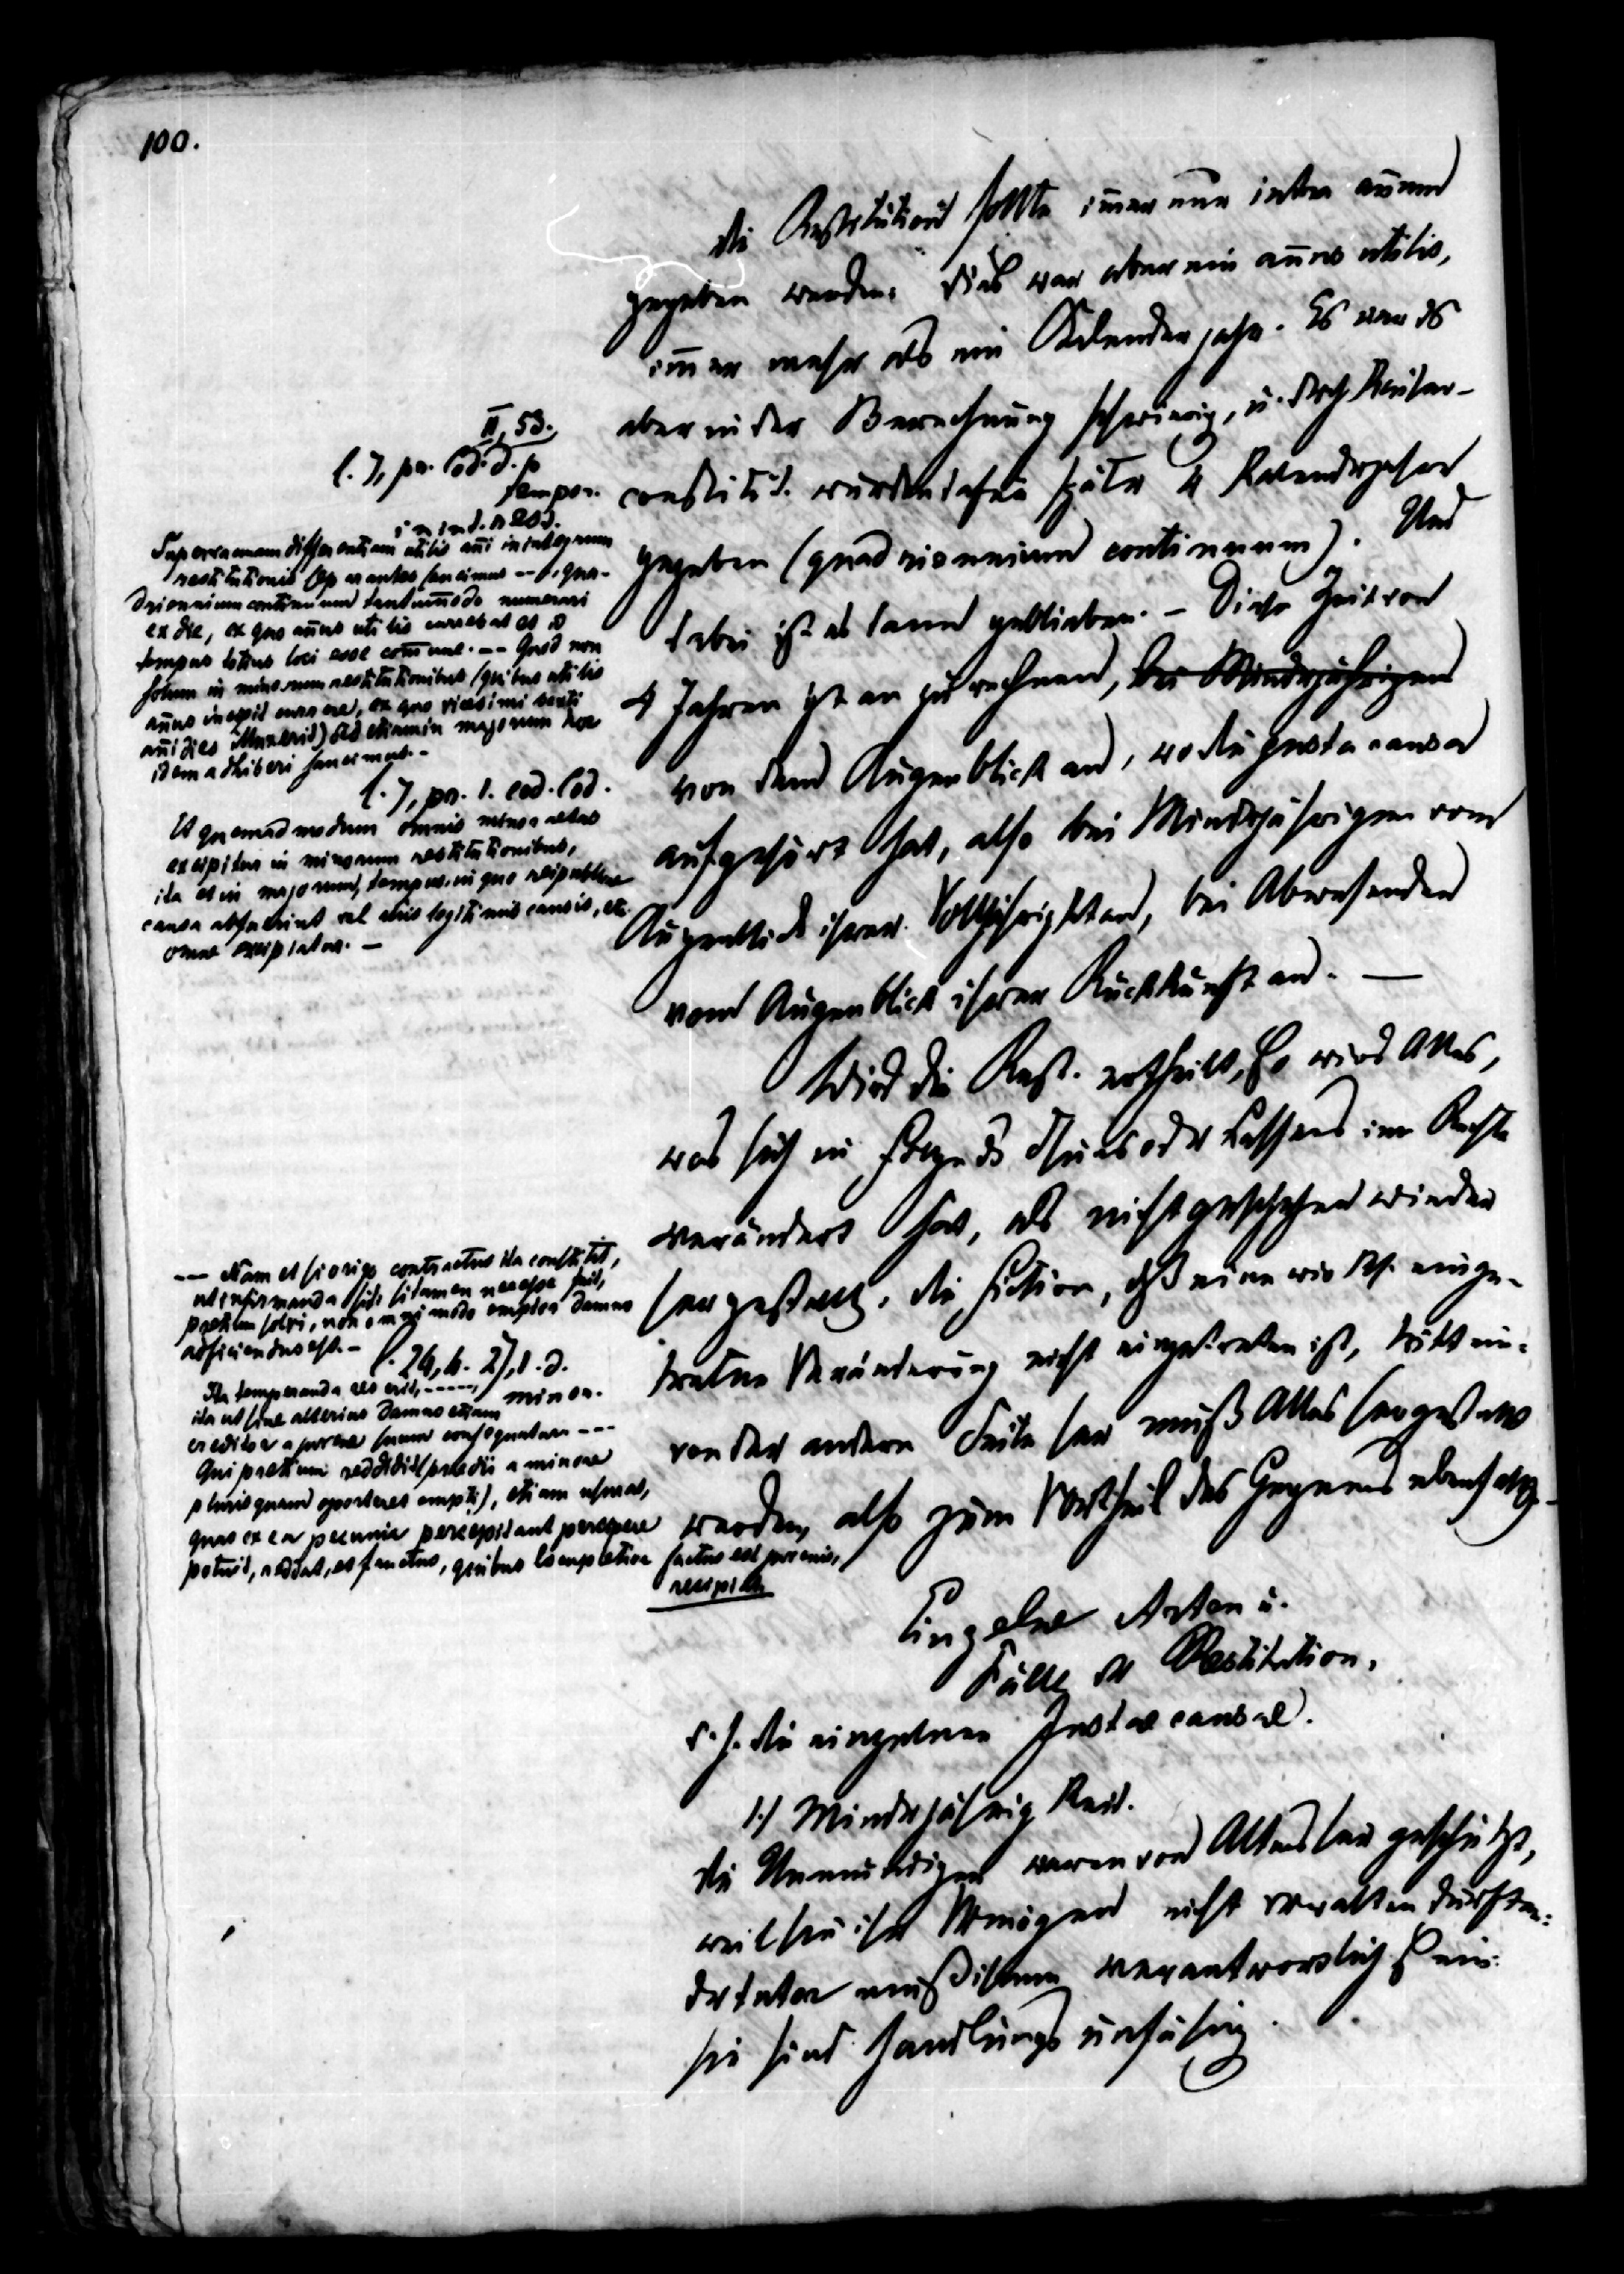 100.
die Restitution sollte immer nur intra annum
gegeben werden: dies war aber ein annus utilis,
immer mehr als ein Kalenderjahr. Es war ds
aber in der Berechnung schwierig, u. durch Kaiser-
constitut. wurden dafür später 4 Kalenderjahre
gegeben (quadriennium continuum). Und
dabei ist es dann geblieben. – Diese Zeit von
4 Jahren ist an zu rechnen, bei Minderjährigen
von dem Augenblick an, wo die justa causa
aufgehört hat, also bei Minderjährigen vom
Augenblick ihrer Volljährigkeit an, bei Abwesenden
vom Augenblick ihrer Rückkunft an. —
Wird die Rest. ertheilt, so wird Alles,
was sich in Folge ds Thuns oder Lassens im Rechte
verändert hat, als nicht geschehen wieder
hergestellt. die Fiction, dß eine wirkl. einge-
tretne Veränderung nicht eingetreten ist, tritt ein.
von der andern Seite her muß Alles hergestellt
werden, also zum Vortheil des Gegners ebenso
Einzelne Arten u.
Fälle der Restitution.
d. h. die einzelnen Justae causae.
1.) Minderjährigkeit.
die Unmündigen waren von Alters her geschützt,
weil sie ihr Vermögen nicht verwalten durften:
der tutor muß ihnen verantwortlich sein.
sie sind handlungsunfähig.
II, 53.
l. 7, pr. Cod. d.
tempor.
in int. rest.
Supervacuam differentiam utilis anni in integrum
restitutionis separantes sancimus -- qua-
driennium continuum tantummodo numerari
ex die, ex quo annus utilis currebat et
tempus totius loci esse commune. -- Quod non
solum in minorum restitutionibus (quibus utilis
annus incepit currere, ex quo vicesimi sexti
anni dies illuxerit) sed etiam in majorum hoc
idem adhiberi sancimus. -
l. 7, pr. 1. eod. Cod.
Et quemadmodum omnis minor aetas
excipitur in minorum restitutionibus,
ita et in majorum, tempus, in quo reipublicae
causa abfuerint vel aliis legitimis causis, etc.
omne excipiatur. —
--- Nam et si origo contractus ita constitit,
ut infirmanda sit, si tamen necesse fuit,
pretium solvi, non omnimodo emptor damno
adficiendus est. -
l. 24, 4. 27, 1. d.
minor.
Ita temperanda res erit, -----,
ita ut sine alterius damno etiam
creditor a juvene suum consequatur ---
Qui pretium reddidit (praedii a minore
pluris quam oporteret empti), etiam usuras,
quas ex ea pecunia percepit aut percipere
potuit, reddat, et fructus, quibus locupletior
factus est juvenis,
recipiat